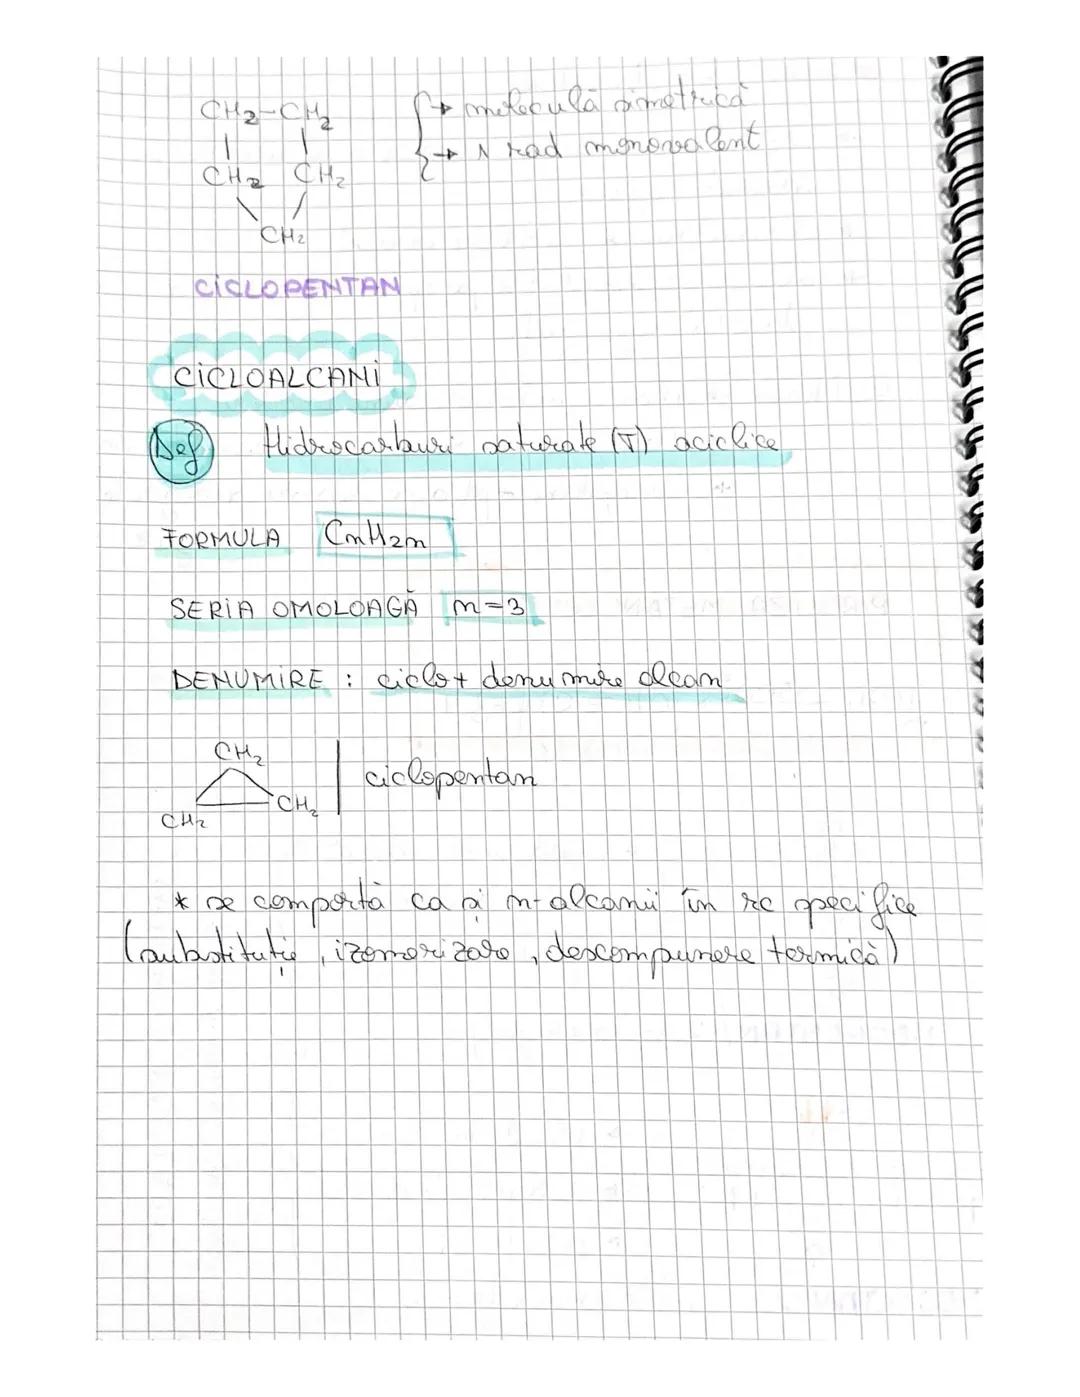 CH2-CH2
CH2 CH2
CH2
→ moleculă simetrică
→ 1 rad monovalent
CICLOPENTAN
CICLOALCANI
Def Hidrocarburi saturate (T) aciclice
FORMULA CnH2n
SERIA OMOLOAGĂ n=3
DENUMIRE : ciclo+ denumire alcan
CH2
CH2 CH2
ciclopentan
* se comportă ca și n-alcanii în rc specifice
(substituție, izomerizare, descompunere termică)